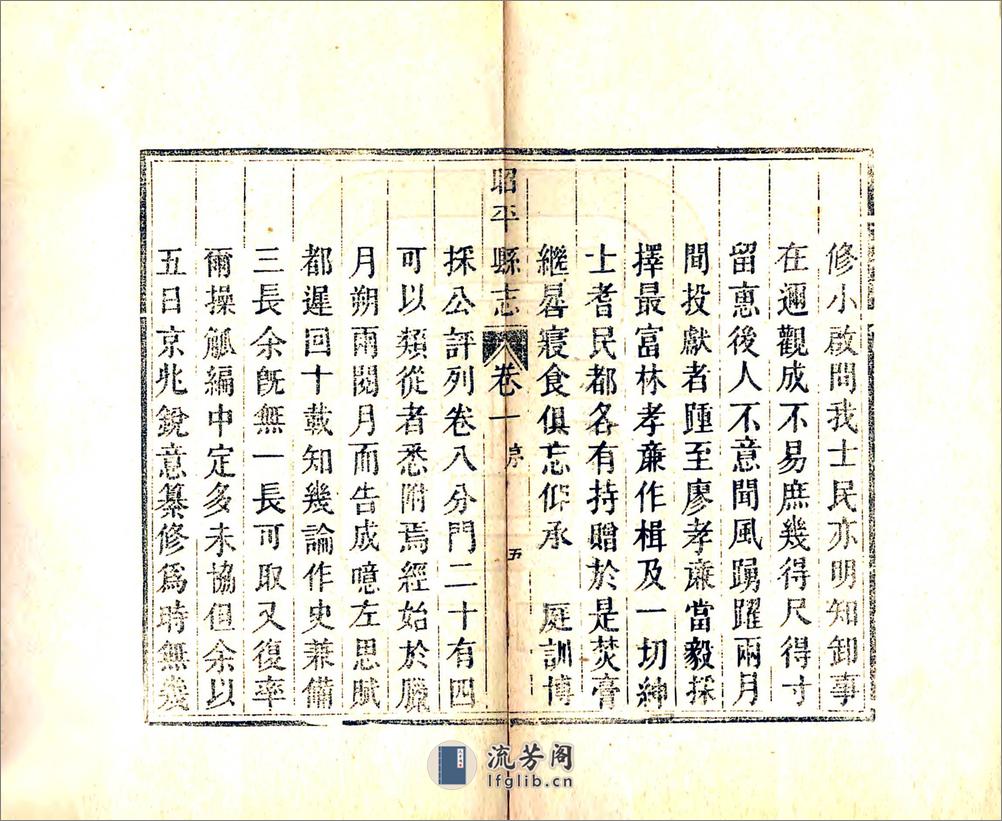 修小啟問我士民亦明知卸事
在邇觀成不易庶幾得尺得寸
留惠後人不意聞風踴躍兩月
間投獻者踵至廖孝亷當毅採
擇最富林孝亷作楫及一切紳
士耆民都各有持贈於是焚膏
繼晷寢食俱忘仰承 庭訓博
昭平縣志 卷一 序 五
採公評列卷八分門二十有四
可以類從者悉附焉經始於臘
月朔兩閱月而告成噫左思賦
都遲回十載知幾論作史兼備
三長余旣無一長可取又復率
爾操觚編中定多未協但余以
五日京兆銳意纂修爲時無幾
流芳阁
lfglib.cn